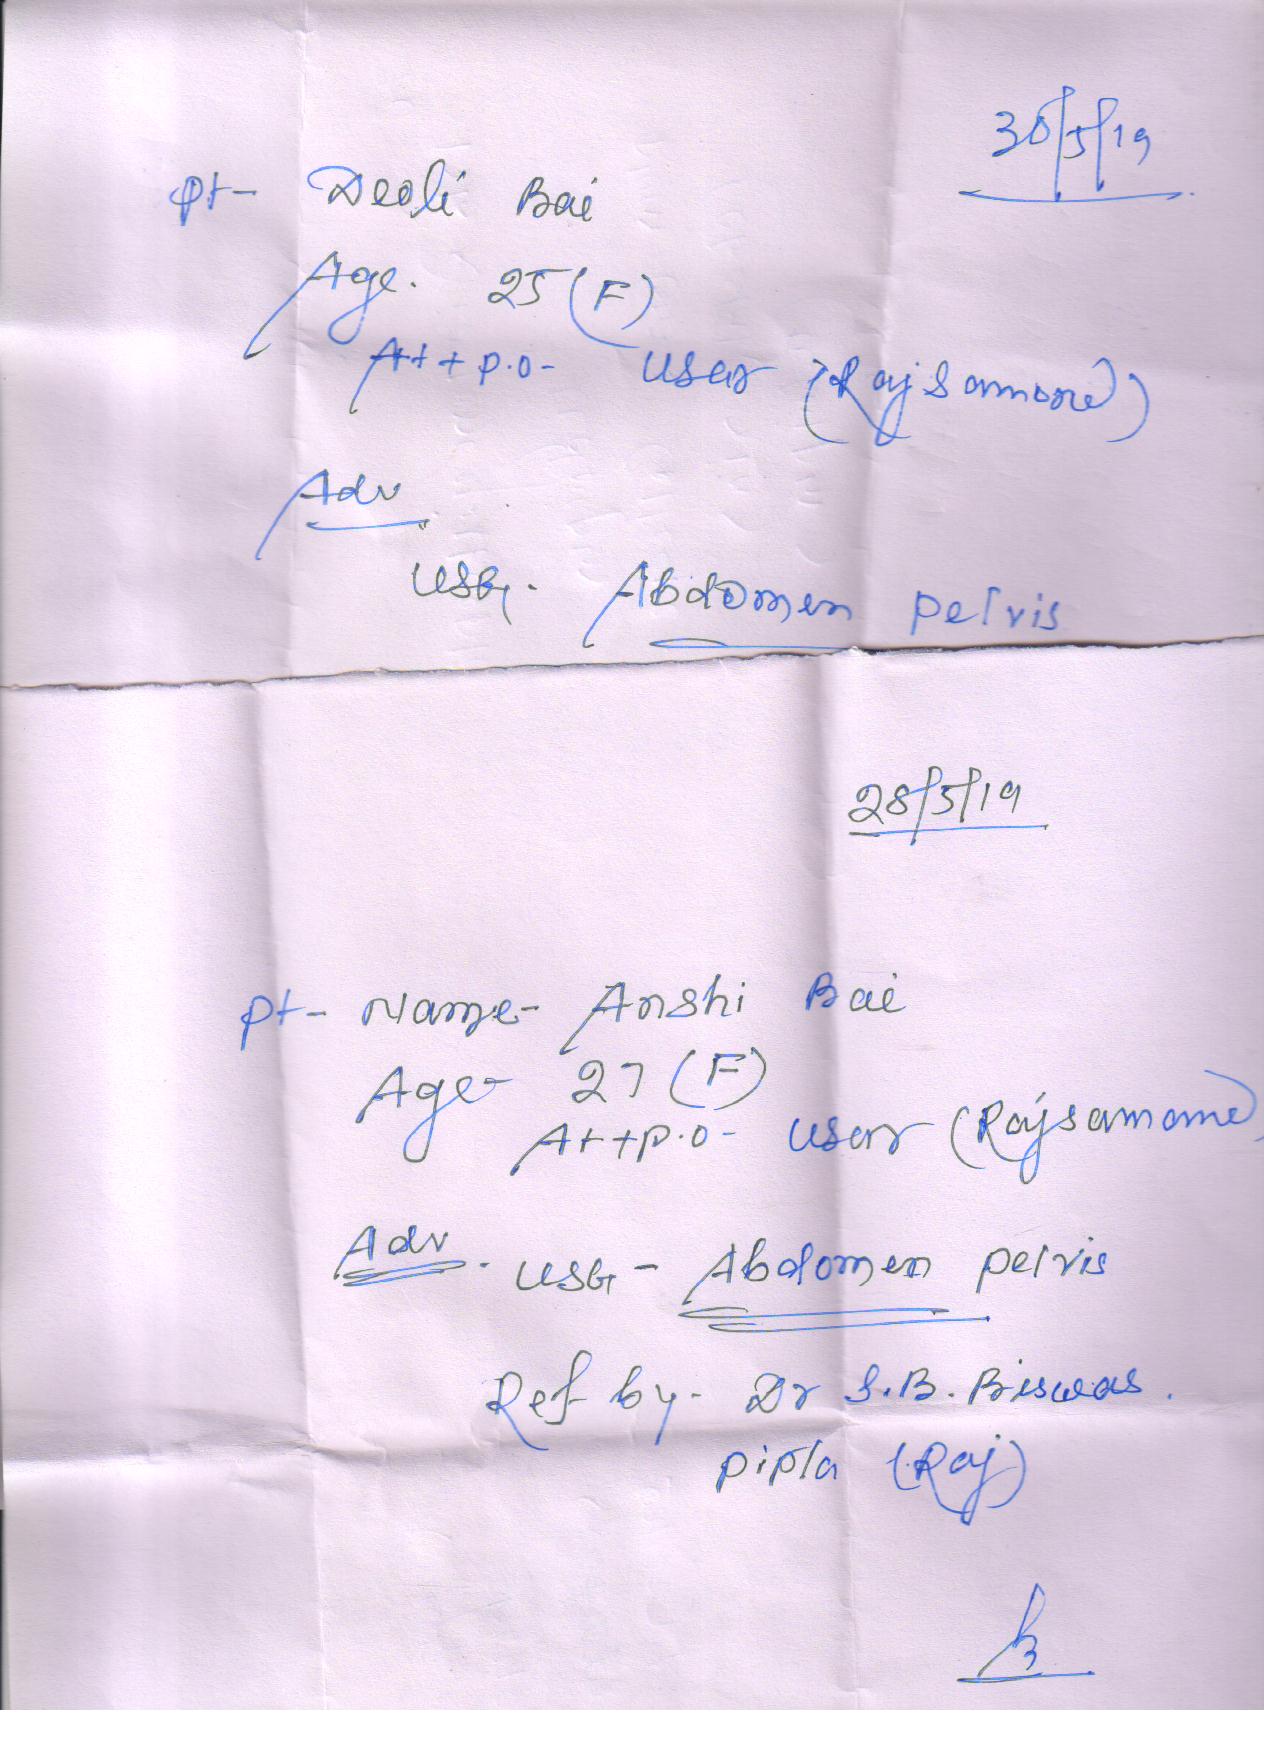 30/5/19
Pt- Deoli Bai
Age. 25 (F)
At + P.O- User (Rajsamand)
Adv
USG. Abdomen pelvis
28/5/19
Pt- Name- Anshi Bai
Age- 27 (F)
At + P.O- User (Rajsamand)
Adv. USG - Abdomen pelvis
Ref by- Dr S.B. Biswas.
pipla (Raj)